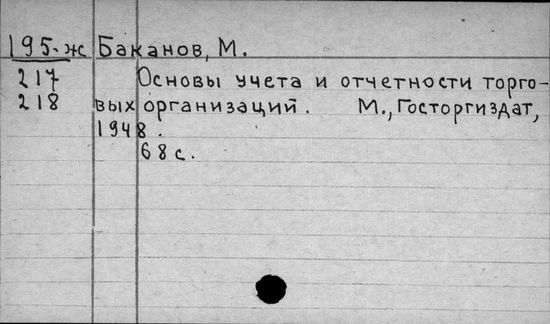 195-ж Баканов, М.
217 Основы учета и отчетности торго-
218 вых организаций. М., Госторгиздат,
1948.
68 с.